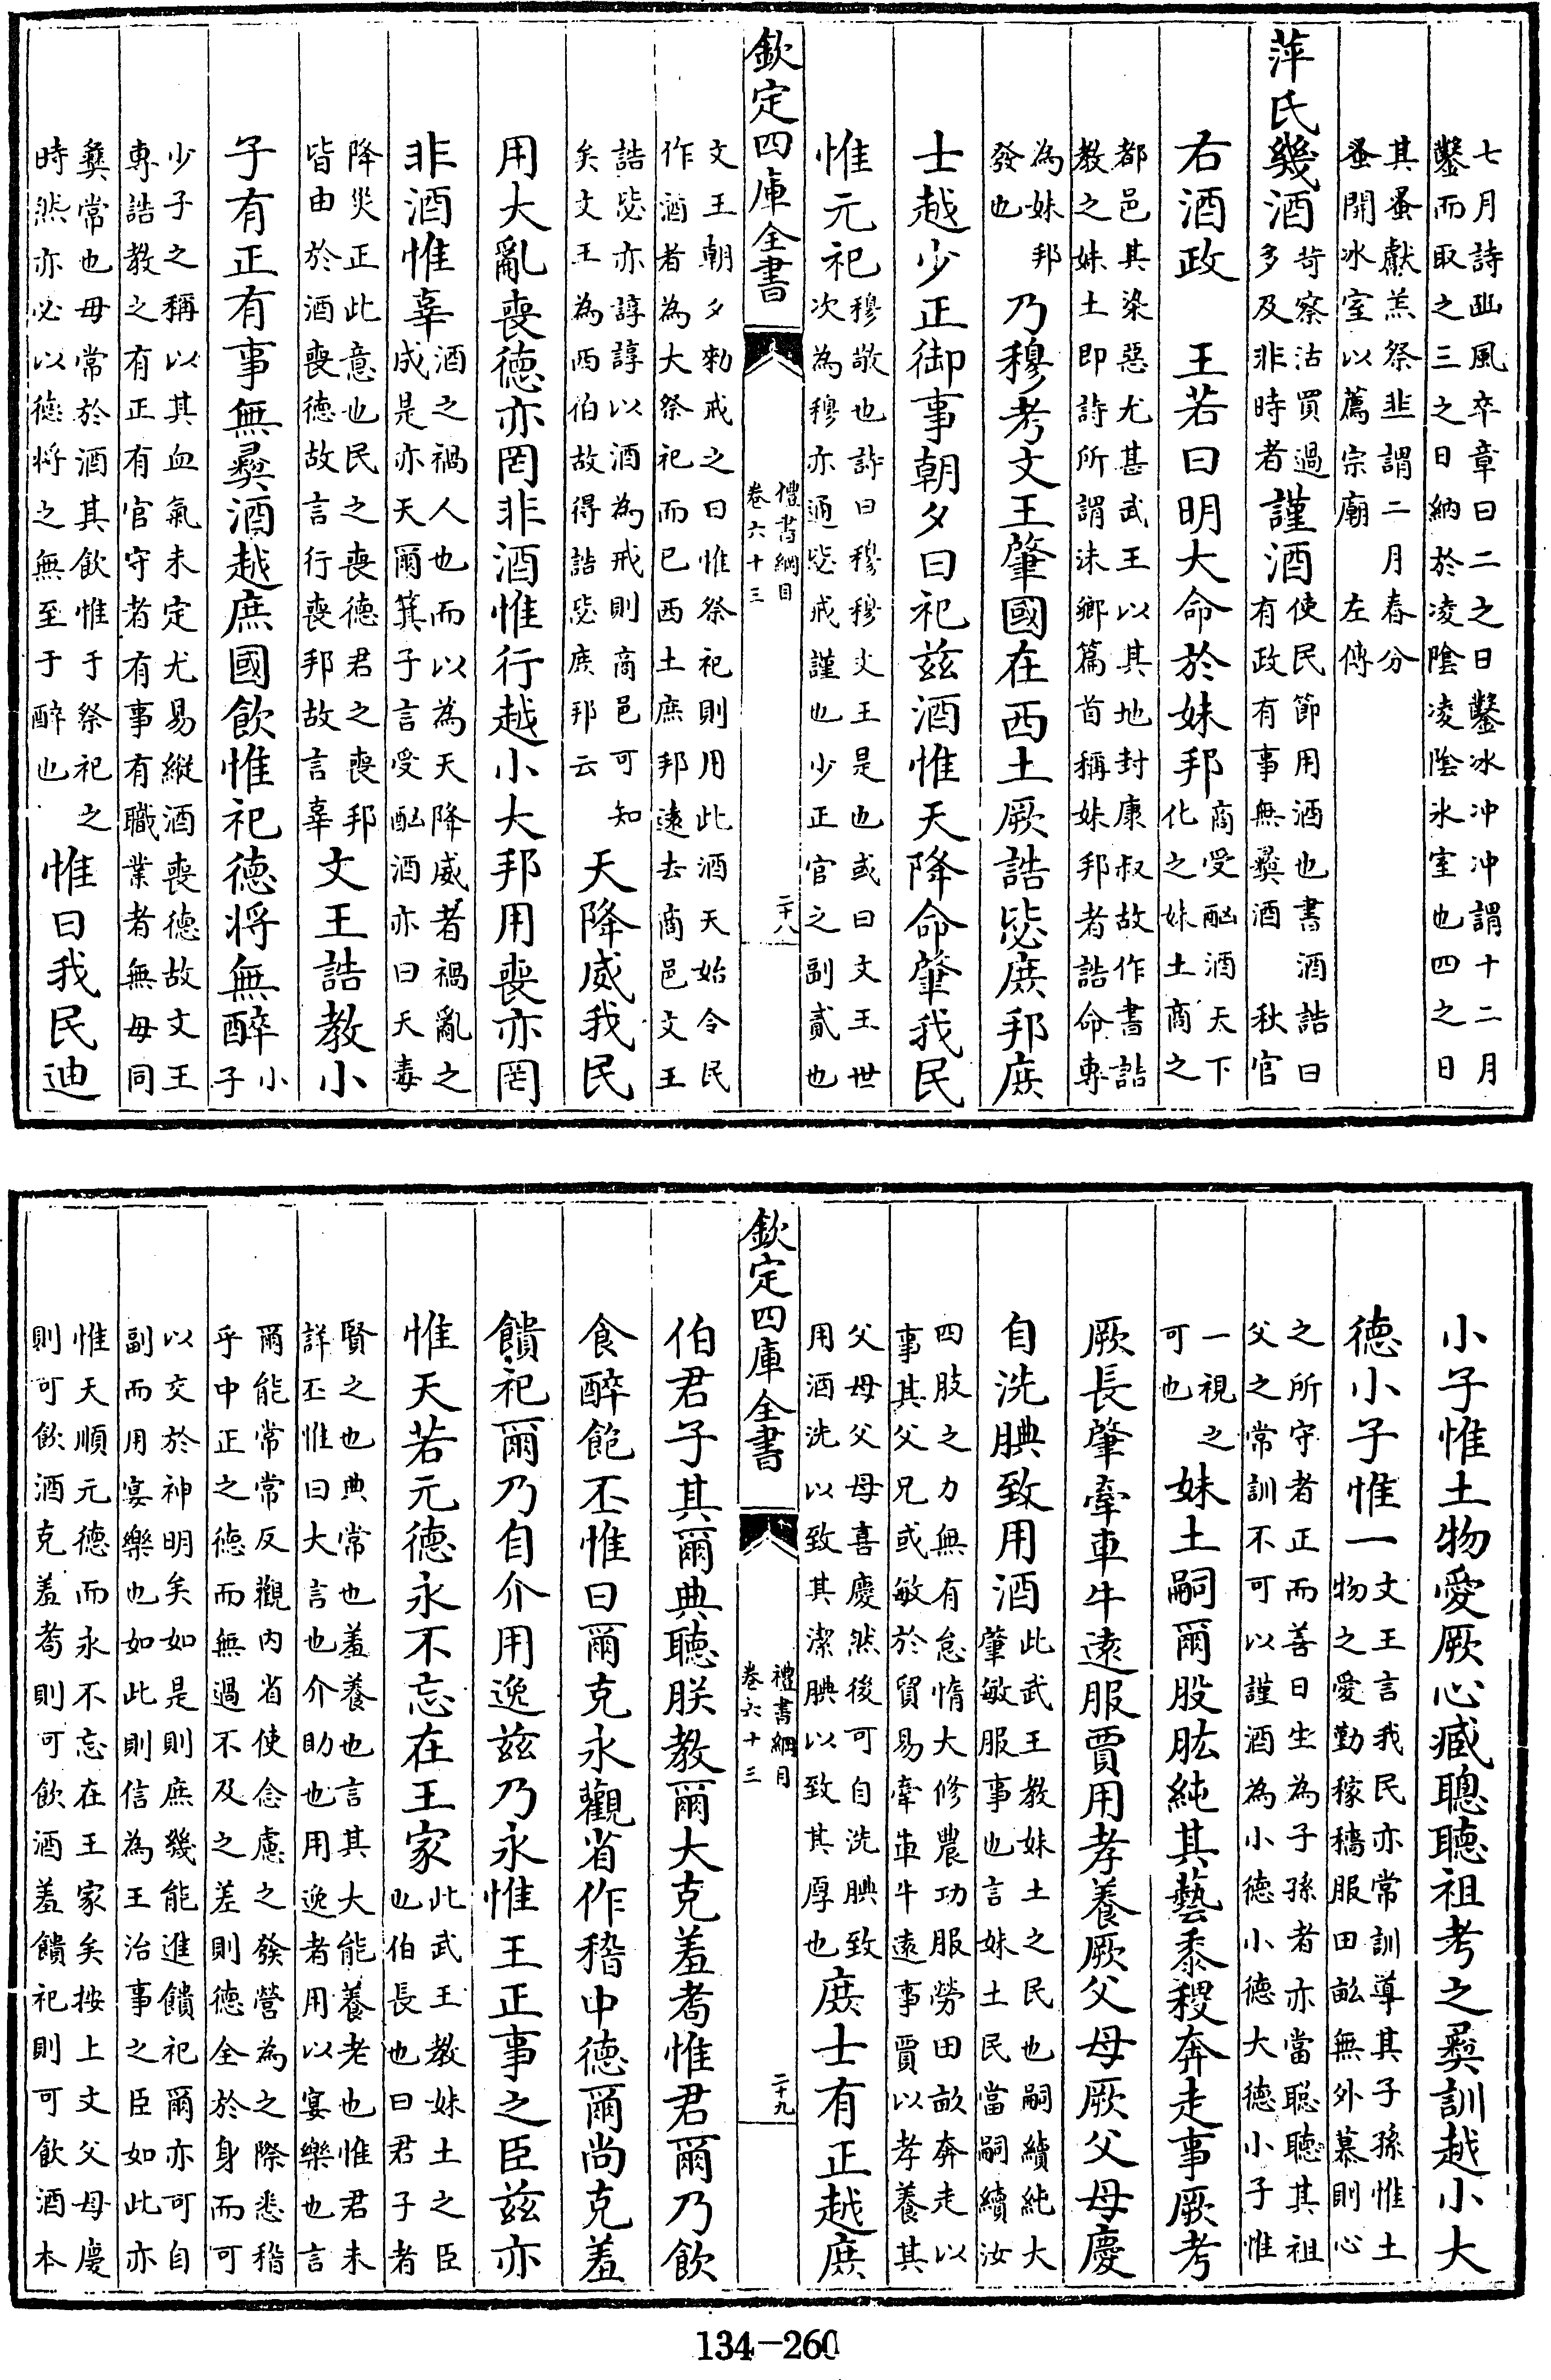 七月詩豳風卒章曰二之日鑿冰冲冲謂十二月
鑿而取之三之日納於凌陰凌陰氷室也四之日
其蚤獻羔祭韭謂二月春分
蚤開冰室以薦宗廟 左傳
萍氏幾酒 苛察沽買過多及非時者 謹酒 使民節用酒也書酒誥曰有政有事無彝酒 秋官
右酒政 王若曰明大命於妹邦 商受酗酒天下化之妹土商之
都邑其染惡尤甚武王以其地封康叔故作書誥
教之妹土即詩所謂沬鄉篇首稱妹邦者誥命專
為妹邦發也 乃穆考文王肇國在西土厥誥毖庶邦庶
士越少正御事朝夕曰祀茲酒惟天降命肇我民
惟元祀 穆敬也詩曰穆穆文王是也或曰文王世次為穆亦通毖戒謹也少正官之副貳也
欽定四庫全書 禮書綱目 卷六十三 二十八
文王朝夕勑戒之曰惟祭祀則用此酒天始令民
作酒者為大祭祀而已西土庶邦遠去商邑文王
誥毖亦諄諄以酒為戒則商邑可知矣文王為西伯故得誥毖庶邦云 天降威我民
用大亂喪德亦罔非酒惟行越小大邦用喪亦罔
非酒惟辜 酒之禍人也而以為天降威者禍亂之成是亦天爾箕子言受酗酒亦曰天毒
降災正此意也民之喪德君之喪邦皆由於酒喪德故言行喪邦故言辜 文王誥教小
子有正有事無彝酒越庶國飲惟祀德將無醉 小子
少子之稱以其血氣未定尤易縱酒喪德故文王
專誥教之有正有官守者有事有職業者無毋同
彝常也毋常於酒其飲惟于祭祀之時然亦必以德將之無至于醉也 惟曰我民迪
小子惟土物愛厥心臧聰聽祖考之彝訓越小大
德小子惟一 文王言我民亦常訓導其子孫惟土物之愛勤稼穡服田畝無外慕則心
之所守者正而善日生為子孫者亦當聰聽其祖
父之常訓不可以謹酒為小德小德大德小子惟
一視之可也 妹土嗣爾股肱純其藝黍稷奔走事厥考
厥長肇牽車牛遠服賈用孝養厥父母厥父母慶
自洗腆致用酒 此武王教妹土之民也嗣續純大肇敏服事也言妹土民當嗣續汝
四肢之力無有怠惰大修農功服勞田畝奔走以
事其父兄或敏於貿易牽車牛遠事賈以孝養其
父母父母喜慶然後可自洗腆致用酒洗以致其潔腆以致其厚也 庶士有正越庶
欽定四庫全書 禮書綱目 卷六十三 二十九
伯君子其爾典聽朕教爾大克羞耇惟君爾乃飲
食醉飽丕惟曰爾克永觀省作稽中德爾尚克羞
饋祀爾乃自介用逸茲乃永惟王正事之臣茲亦
惟天若元德永不忘在王家 此武王教妹土之臣也伯長也曰君子者
賢之也典常也羞養也言其大能養老也惟君未
詳丕惟曰大言也介助也用逸者用以宴樂也言
爾能常常反觀內省使念慮之發營為之際悉稽
乎中正之德而無過不及之差則德全於身而可
以交於神明矣如是則庶幾能進饋祀爾亦可自
副而用宴樂也如此則信為王治事之臣如此亦
惟天順元德而永不忘在王家矣按上文父母慶
則可飲酒克羞耇則可飲酒羞饋祀則可飲酒本
134-260